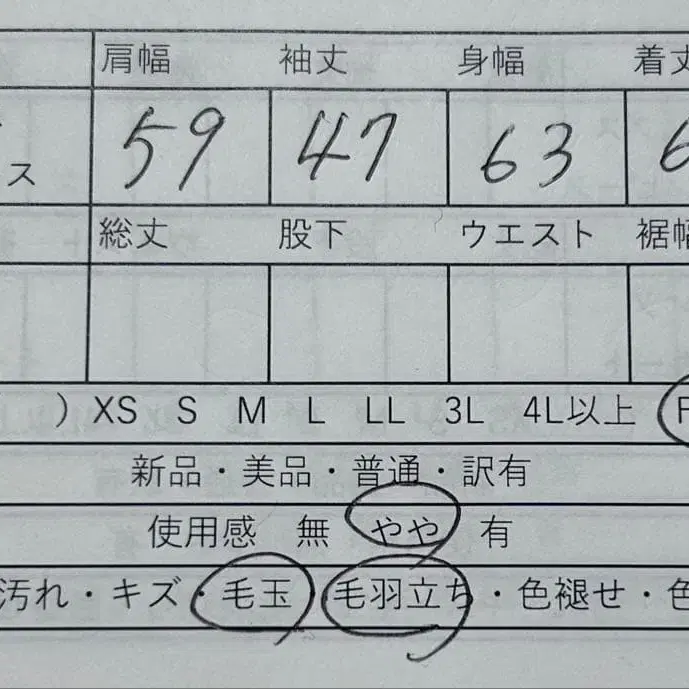 肩幅 袖丈 身幅 着丈
ス 59 47 63 6
総丈 股下 ウエスト 裾幅
) XS S M L LL 3L 4L以上 F
新品・美品・普通・訳有
使用感 無 やや 有
汚れ・キズ・毛玉・毛羽立ち・色褪せ・色